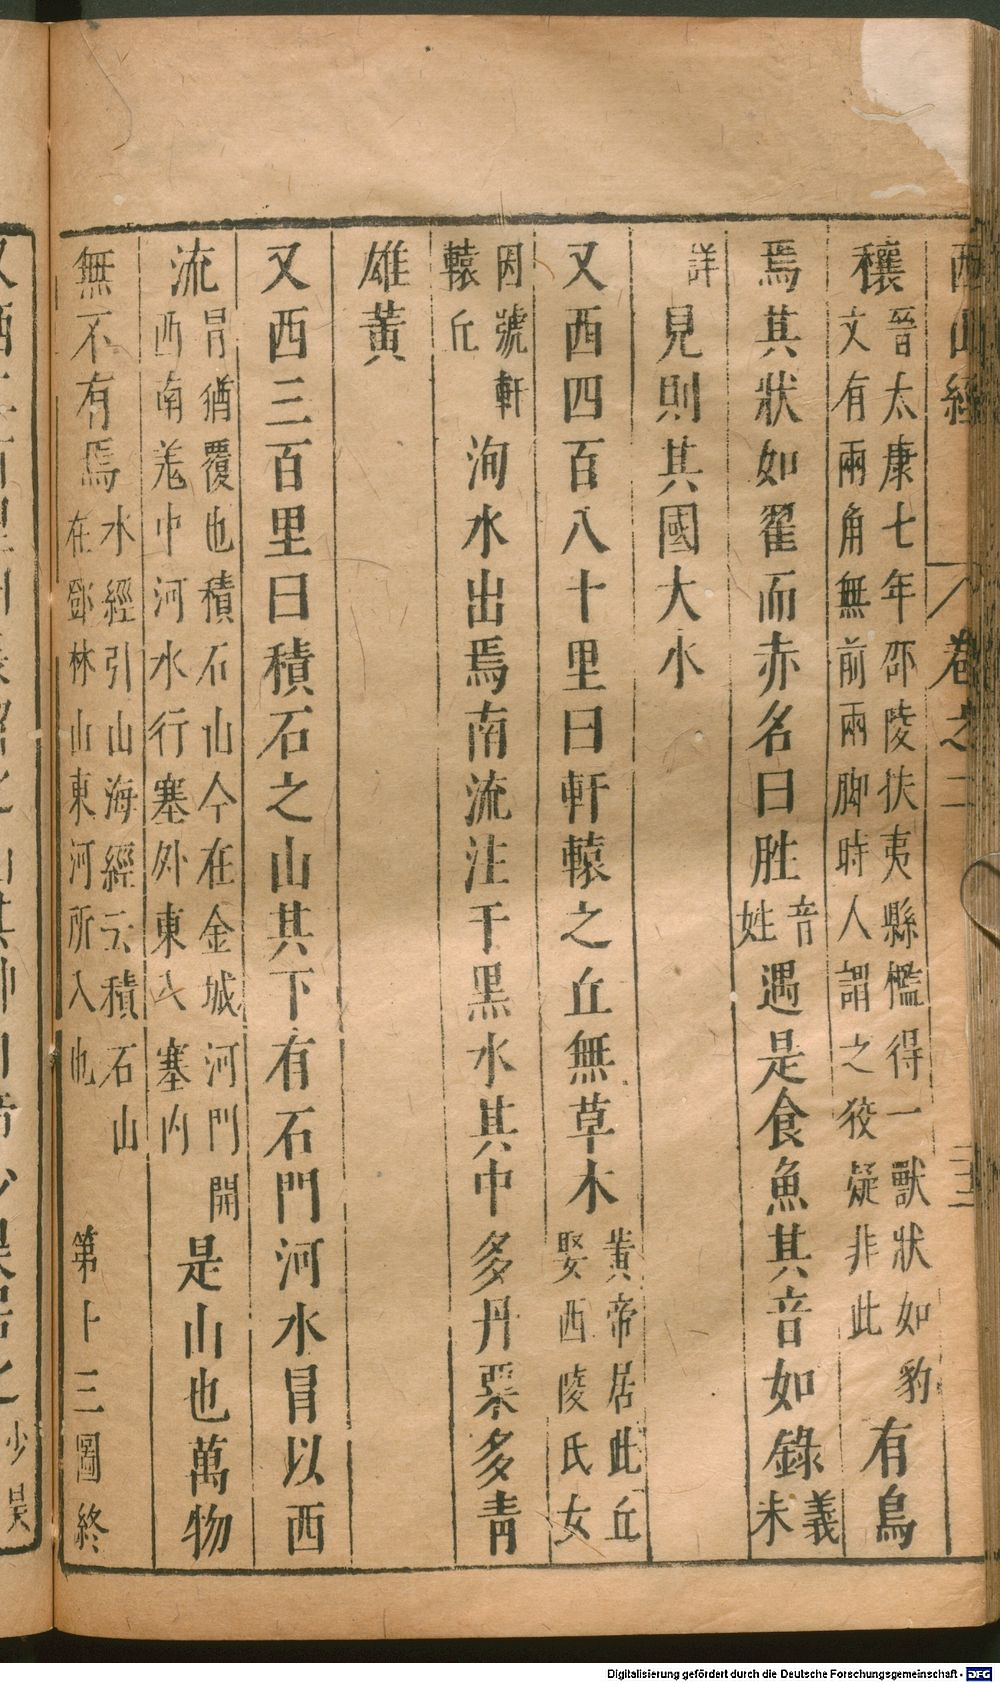 西山經 卷之二
穰晉太康七年邵陵扶夷縣檻得一獸狀如豹文有兩角無前兩脚時人謂之狡疑非此有鳥
焉其狀如翟而赤名曰胜音姓遇是食魚其音如錄義未
詳見則其國大水
又西四百八十里曰軒轅之丘無草木黃帝居此丘娶西陵氏女
因號軒轅丘洵水出焉南流注于黑水其中多丹粟多青
雄黃
又西三百里曰積石之山其下有石門河水冒以西
流冒猶覆也積石山今在金城河門開西南羗中河水行塞外東入塞內是山也萬物
無不有焉水經引山海經云積石山在鄧林山東河所入也 第卜三圖終
少昊
Digitalisierung gefördert durch die Deutsche Forschungsgemeinschaft - DFG